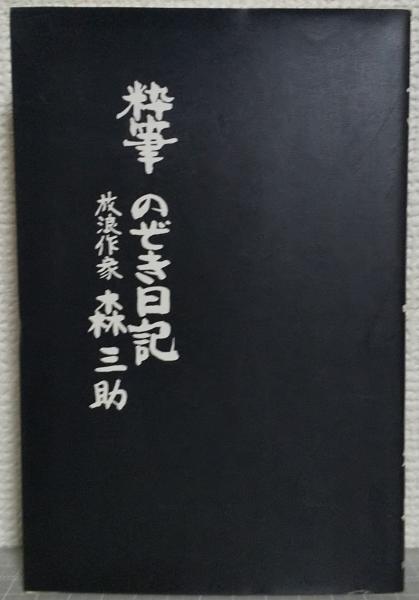 粋筆 のぞき日記
放浪作家 森三助